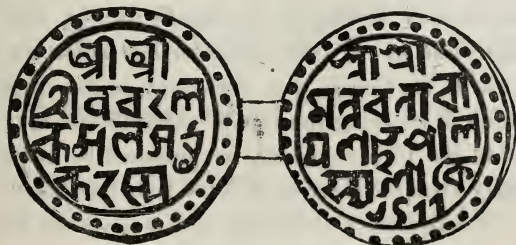 শ্রী শ্রী
শিবচরণ
কমলমধু
করস্য
শ্রীশ্রী
মন্নরনারা
য়ণভূপাল
স্যশাকে